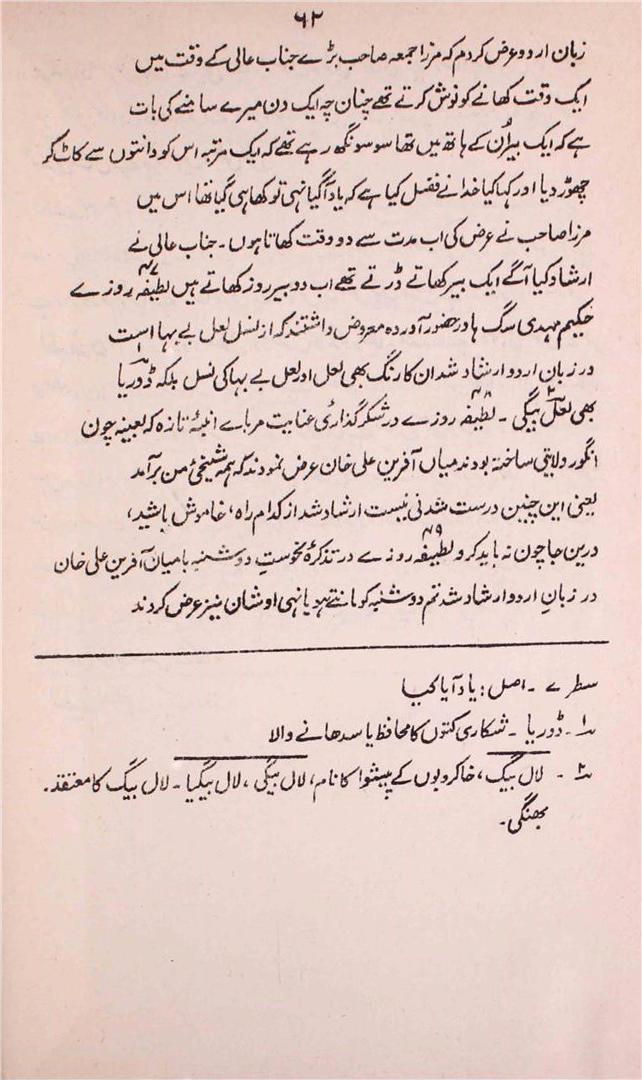 ۶۲
زبان اردو عرض کردم کہ مرزا جمعہ صاحب بڑے جناب عالی کے وقت میں
ایک وقت کھانے کو نوش کرتے تھے چنان چہ ایک دن میرے سامنے کی بات
ہے کہ ایک بیر اُن کے ہاتھ میں تھا سو سونگھ رہے تھے کہ ایک مرتبہ اس کو دانتوں سے کاٹ کر
چھوڑ دیا اور کہا کیا خدا نے فضل کیا ہے کہ یاد آگیا نہی تو کھا ہی گیا تھا اس میں
مرزا صاحب نے عرض کی اب مدت سے دو وقت کھاتا ہوں۔ جناب عالی نے
ارشاد کیا آگے ایک بیر کھاتے ڈرتے تھے اب دو بیر روز کھاتے ہیں لطیفہ ۴۷ روزے
حکیم مہدی سگ ہا در حضور آوردہ معروض داشتند کہ از نسل لعل بے بہا است
در زبان اردو ارشاد شد ان کا رنگ بھی لعل اور لعل بے بہا کی نسل بلکہ ڈوریا۱
بھی لعل بیگی۲۔ لطیفہ ۴۸ روزے در شکر گذاری عنایت مرباے انبۂ تازہ کہ بعینہ چون
انگور ولایتی ساختہ بودند میاں آفرین علی خان عرض نمودند کہ ہمہ شیخیٔ من برآمد
یعنی این چنین درست شدنی نیست ارشاد شد از کدام راہ، خاموش باشید،
درین جا چون نہ باید کرد لطیفہ ۴۹ روزے در تذکرۂ نحوستِ دوشنبہ با میاں آفرین علی خان
در زبانِ اردو ارشاد شد تم دوشنبہ کو مانتے ہو یا نہی اوشان نیز عرض کردند
سطر ے ۔ اصل: یاد آیا کیا
۱۔ ڈوریا ۔ شکاری کتوں کا محافظ یا سدھانے والا
۲۔ لال بیگ، خاکروبوں کے پیشوا کا نام، لال بیگی، لال بیگیا۔ لال بیگ کا معتقد۔
بھنگی۔